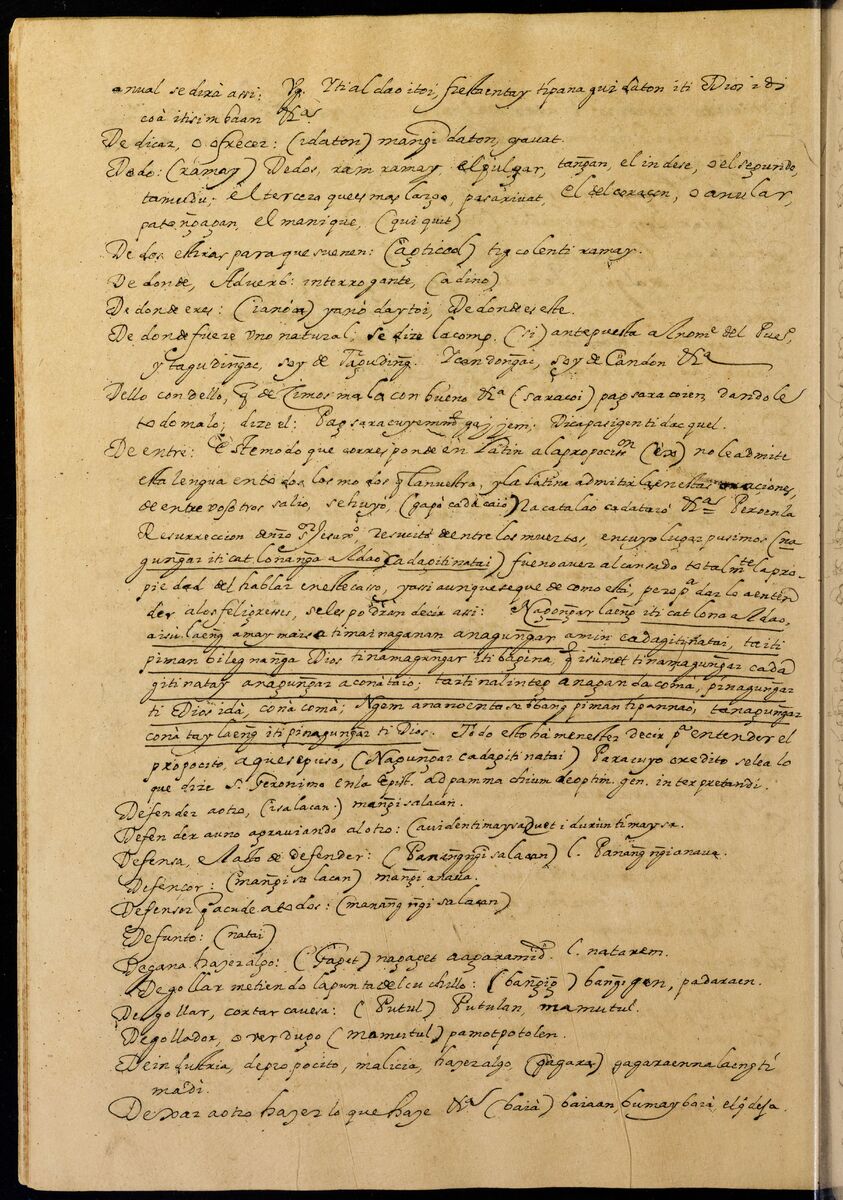 anual se dirà assi: Vg. Yti aldao itoi, fiesta entay tipana gui daton iti Dios i di
coà itisimbaan &ª
Dedicar, o ofrecer: (idaton) mangi daton, gavat.
Dedo: (ramay) Dedos, ram ramay, el pulgar, tangan, el indese, o el segundo,
tamudu; el tercero que es mas largo, pasarivat, el del coraçon, o anular,
patongagan, el manique, (quiquit)
Dedos estiras para que suenen: (agticod) tigcolenti ramay.
De donde, Adverb: interrogante, (adino)
De donde eres: (ianò) yanò daytoi, De donde es este.
De donde fuere uno natural, se dize la comp. (si) antepuesta al nomᵉ del Pueº,
y tagudinḡ, soy de Tagudinḡ. Ycandonḡai, soy de Candon &ª
Dello con dello, q̄ deZimos mala con bueno &ª (saracoi) pagsaracoien, dandole
todo malo; dize el: Pag saracuyem gajjem; Dicapasigentidacquel.
De entre: Este modo que corresponde en Latin a la proposicion (ex) no le admite
esta lengua en todos los modos q̄ la nuestra, y la latina admitirla en estas oraciones,
de entre vosotros salio, se huyò, (gapò cadacaio) Nacatalao cadatarò &ª Pero en la
Resurreccion de nr̃o Sʳ Jesuxº, resucitò de entre los muertos, en cuyo lugar pusimos (na
gunḡar iti cat. lonanḡa aldao cadagiti natai) fueno aver alcansado totalmᵗᵉ la pro-
piedad del hablar en este casso, y assi aunque se quede como està, pero pª dar lo a enten
der a los feligreses, se les podran decir assi: Nagonḡar laenḡ iti cat lona aldao,
aisu laenḡ amay maisa ti mainaganan anagunḡar amin cadagiti natai, ta iti
piman bilegnanḡa Dios tinamagunḡar iti bagina, q̄ isumet tinamagunḡar cada
giti natay anagunḡar aconataio; ta iti nalinteg anagan da comà, pinagunḡar
ti Dios ida, conà comà; Ngem ananoenta sabbang piman tipannao, tanagunḡar
conàtay laenḡ iti pinagunḡar ti Dios. Todo esto hà menester decir pª entender el
proposito, aquese puso, (Nagunḡar cadagiti natai) Para cuyo credito se lea lo
que dize S. Geronimo en la Epist. ad pammachium de optim. gen. interpretandi.
Defender a otro, (isalacan:) manḡisalacan.
Defender a uno agraviando al otro: (avidentimaysa Quet idurun timaysa.
Defensa, el acto de defender: (Pananḡisalacan) l. Pananḡ nḡianava.
Defencor: (manḡisalacan) manḡianava.
Defensor q̄ acude a todos: (mananḡ nḡi salacan)
Defunto: (natai)
De gana hazer algo: (Gaget) nagaget agaramid. l. natarem.
Degollar metiendo la punta del cuchillo: (banḡiḡ) banḡigen, padaraen.
Degollar, cortar cavesa: (Putul) Putulan, mamutul.
Degollador, o verdugo (mamutul) pamotpotolen.
De industria, de proposito, malicia, hazer algo, (gagara) gagaraennalaengti
màdi.
Dexar a otro hazer lo que haze &ª (baià) baiaan, bumaybaià, el q̄ dexa.